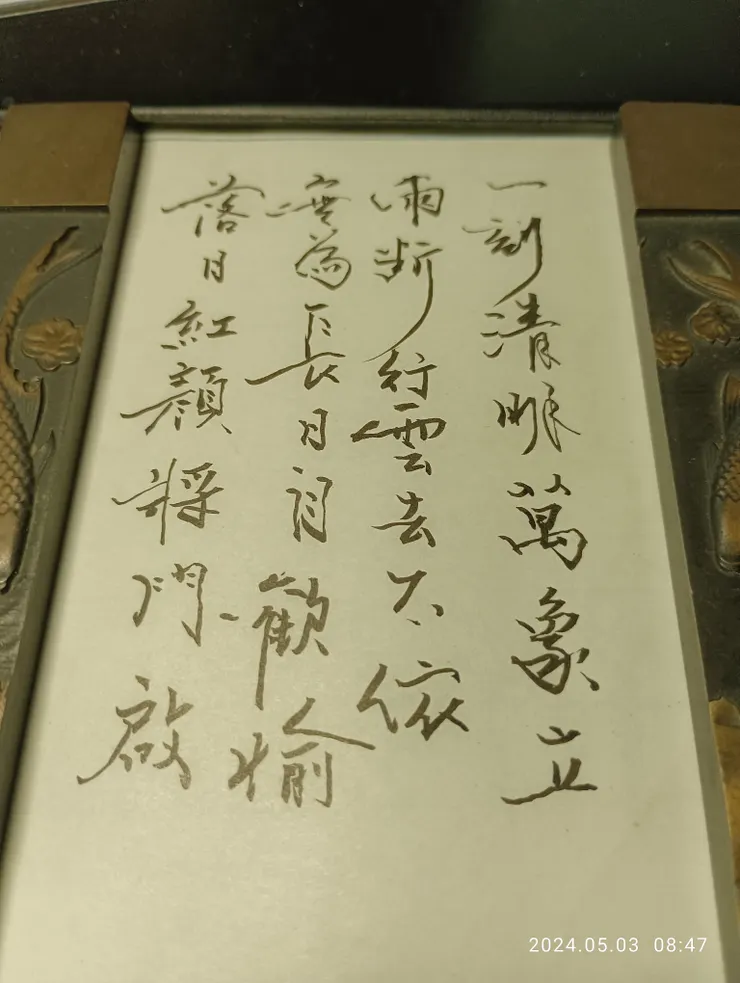 一刻清眠萬象立
雨斷行雲去不依
寔為長日自歡愉
落日紅顏將門啟
2024.05.03 08:47